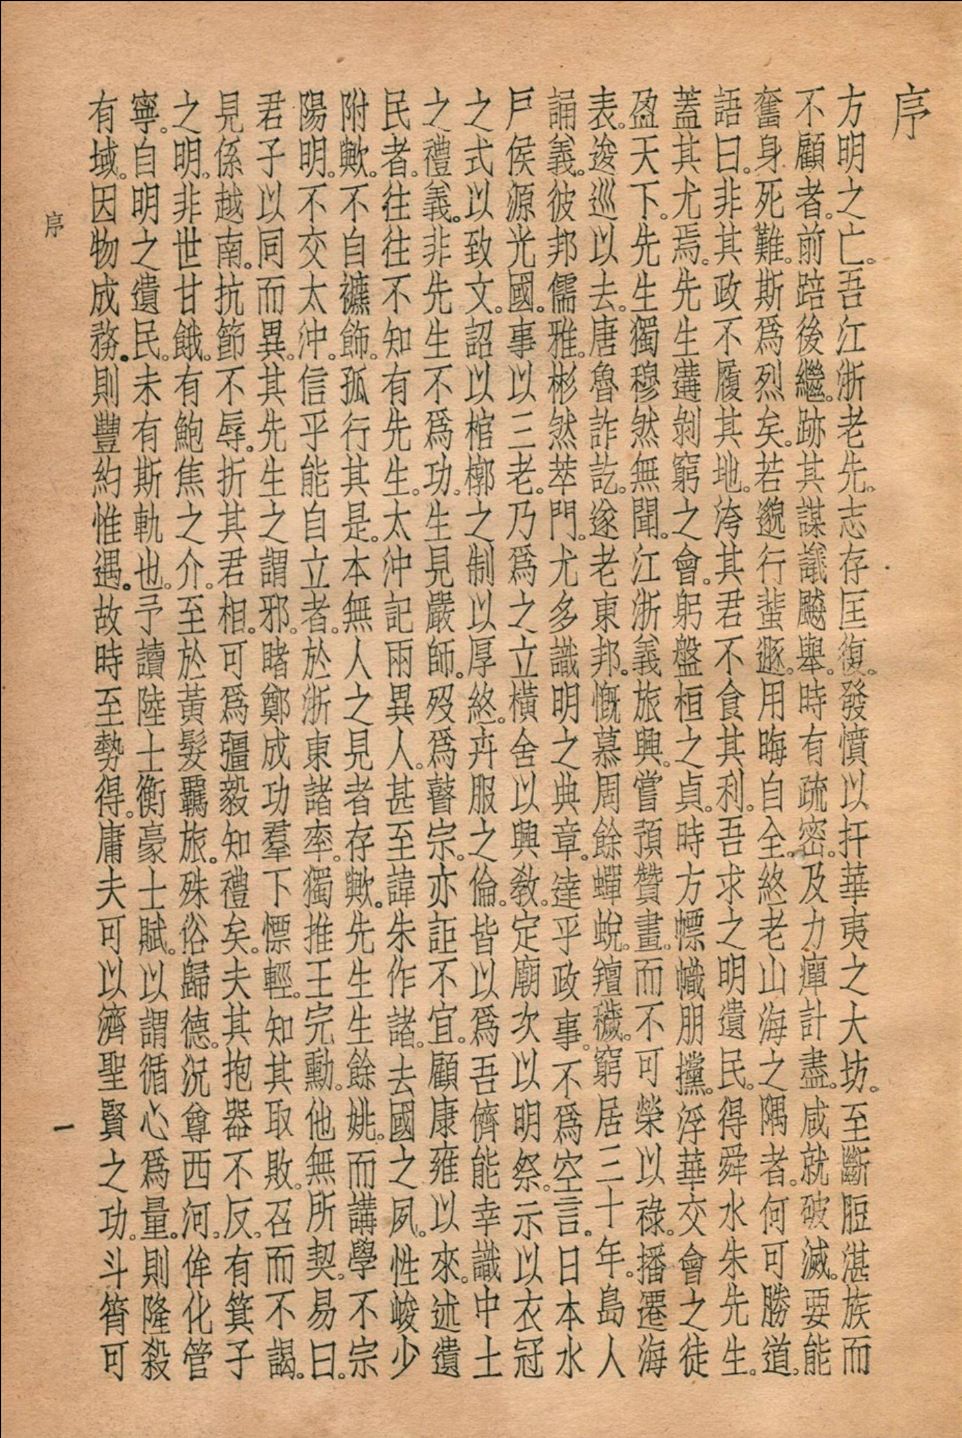 序
方明之亡。吾江浙老先。志存匡復。發憤以扞華夷之大坊。至斷脰湛族而
不顧者。前踣後繼。跡其謀議飈舉。時有疏密。及力癉計盡。咸就破滅。要能
奮身死難。斯爲烈矣。若邈行蜚遯。用晦自全。終老山海之隅者。何可勝道。
語曰。非其政不履其地。洿其君不食其利。吾求之明遺民。得舜水朱先生。
蓋其尤焉。先生遘剝窮之會。躬盤桓之貞。時方幖幟朋攩。浮華交會之徒
盈天下。先生獨穆然無聞。江浙義旅興。嘗預贊畫。而不可榮以祿。播遷海
表。逡巡以去。唐魯詐訖。遂老東邦。慨慕周餘。蟬蛻羶穢。窮居三十年。島人
誦義。彼邦儒雅。彬然萃門。尤多識明之典章。達乎政事。不爲空言。日本水
戶侯源光國。事以三老。乃爲之立橫舍以興敎。定廟次以明祭。示以衣冠
之式以致文。詔以棺槨之制以厚終。卉服之倫。皆以爲吾儕能幸識中土
之禮義。非先生不爲功。生見嚴師。歿爲瞽宗。亦詎不宜。顧康雍以來。述遺
民者。往往不知有先生。太沖記兩異人。甚至諱朱作諸。去國之夙。性峻少
附歟。不自褫飾。孤行其是。本無人之見者存歟。先生生餘姚。而講學不宗
陽明。不交太沖。信乎能自立者。於浙東諸率。獨推王完勳。他無所契。易曰。
君子以同而異。其先生之謂邪。睹鄭成功羣下慓輕。知其取敗。召而不謁。
見係越南。抗節不辱。折其君相。可爲彊毅知禮矣。夫其抱器不反。有箕子
之明。非世甘餓。有鮑焦之介。至於黃髮羈旅。殊俗歸德。況尊西河。侔化管
寧。自明之遺民。未有斯軌也。予讀陸士衡豪士賦。以謂循心爲量。則隆殺
有域。因物成務。則豐約惟遇。故時至勢得。庸夫可以濟聖賢之功。斗筲可
序
一